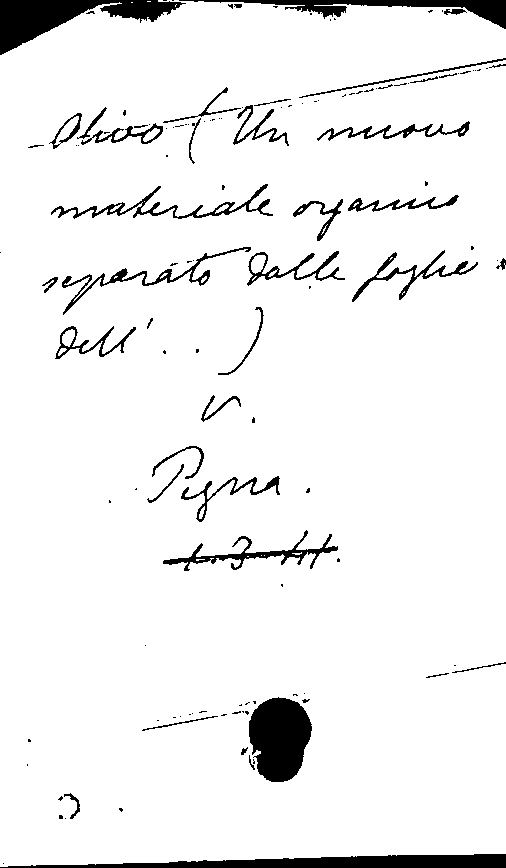 Olivo (Un nuovo
materiale organico
separato dalle foglie
dell'..)
V.
Pigna.